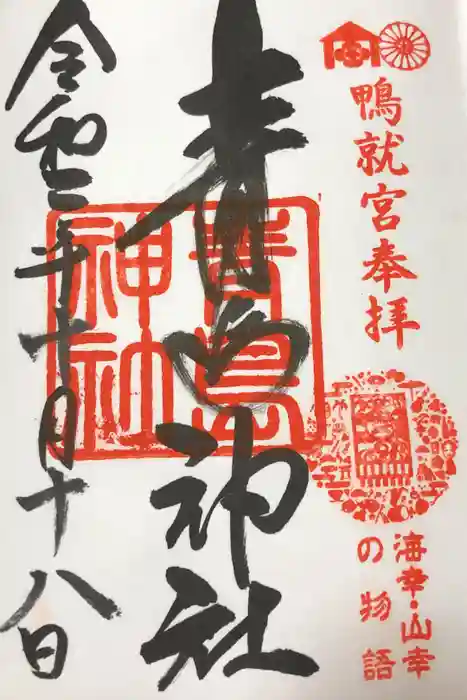 鴨就宮奉拝
海幸・山幸
の物語
青島神社
令和二年十月十八日